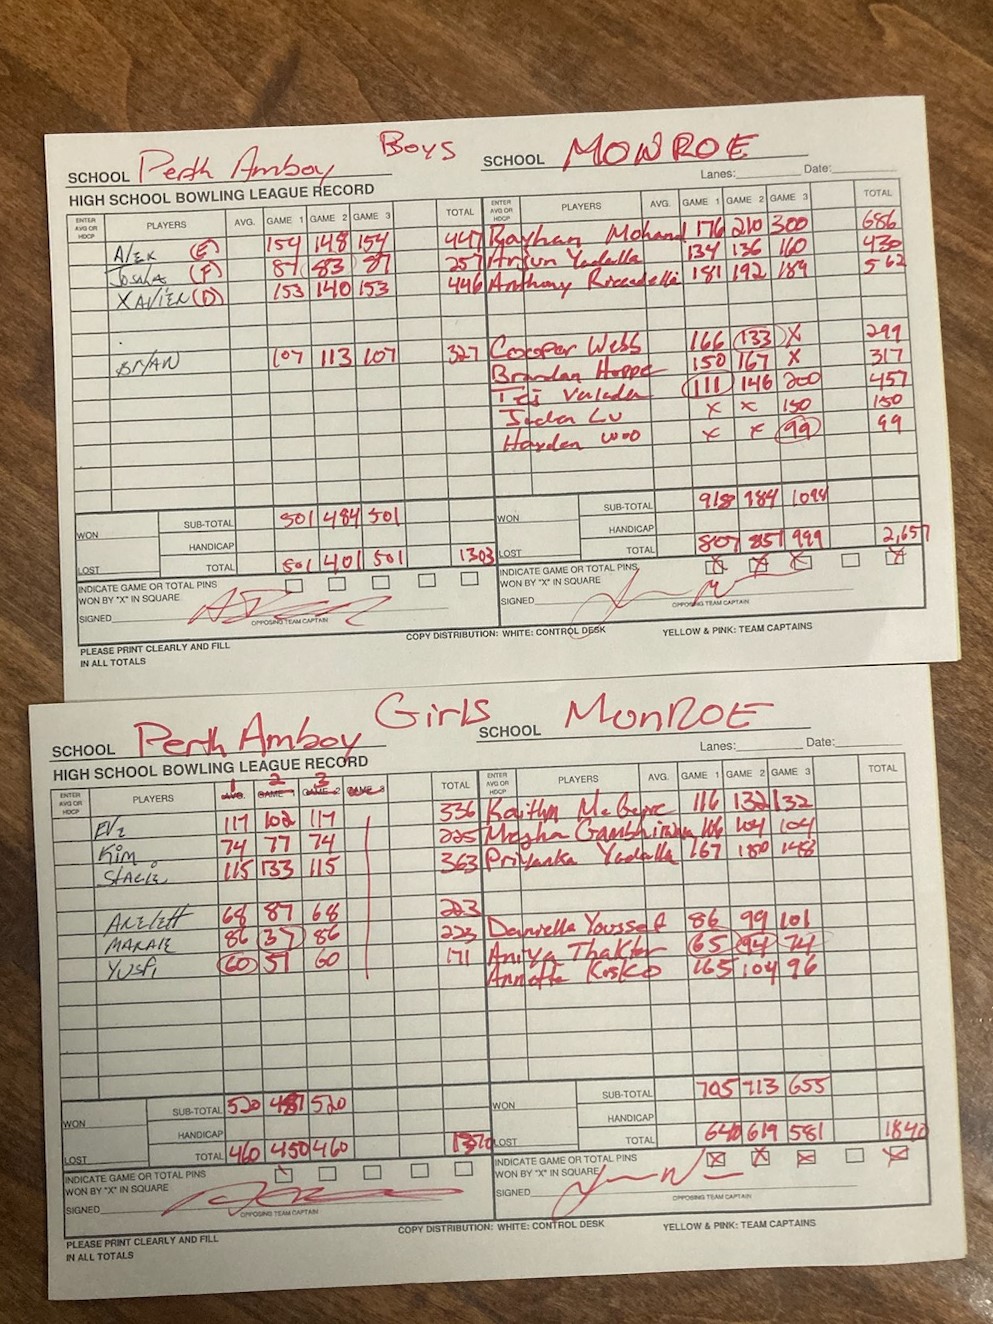 Boys
SCHOOL Perth Amboy SCHOOL MONROE
Lanes: Date:
HIGH SCHOOL BOWLING LEAGUE RECORD
ENTER AVG OR HDCP PLAYERS AVG. GAME 1 GAME 2 GAME 3 TOTAL ENTER AVG OR HDCP PLAYERS AVG. GAME 1 GAME 2 GAME 3 TOTAL
Alex (E) 154 148 154 447 Rayhan Mohand 176 210 300 686
(F) 87 83 87 257 Arjun Yadalla 134 136 160 430
XAVIER (D) 153 140 153 446 Anthony Riccadelli 181 192 189 562
BRYAN 107 113 107 327 Cooper Webb 166 133 X 299
Brandan Hoppe 150 167 X 317
Tej Valada 111 146 200 457
Jaden Lu X X 150 150
Hayden Woo X X 99 99
WON SUB-TOTAL 501 484 501 WON SUB-TOTAL 918 984 1094
HANDICAP HANDICAP
LOST TOTAL 501 401 501 1303 LOST TOTAL 807 851 999 2,657
INDICATE GAME OR TOTAL PINS WON BY "X" IN SQUARE INDICATE GAME OR TOTAL PINS WON BY "X" IN SQUARE X X X X
SIGNED SIGNED
OPPOSING TEAM CAPTAIN OPPOSING TEAM CAPTAIN
PLEASE PRINT CLEARLY AND FILL IN ALL TOTALS COPY DISTRIBUTION: WHITE: CONTROL DESK YELLOW & PINK: TEAM CAPTAINS
Girls
SCHOOL Perth Amboy SCHOOL MonROE
Lanes: Date:
HIGH SCHOOL BOWLING LEAGUE RECORD
1 2 3
ENTER AVG OR HDCP PLAYERS AVG. GAME 1 GAME 2 GAME 3 TOTAL ENTER AVG OR HDCP PLAYERS AVG. GAME 1 GAME 2 GAME 3 TOTAL
117 102 117 336 Kaitlyn 116 132 132
Kim 74 77 74 225 Megha 106 104 104
STACIE 115 133 115 363 Priyanka Yadalla 167 180 148
68 87 68 223
86 37 86 223 Daniella Youssef 86 99 101
YUSFi 60 51 60 171 Aniya Thakker 65 94 74
Annette Kosko 165 104 96
WON SUB-TOTAL 520 487 520 WON SUB-TOTAL 705 713 655
HANDICAP HANDICAP
LOST TOTAL 460 450 460 1370 LOST TOTAL 640 619 581 1840
INDICATE GAME OR TOTAL PINS WON BY "X" IN SQUARE INDICATE GAME OR TOTAL PINS WON BY "X" IN SQUARE X X X X
SIGNED SIGNED
OPPOSING TEAM CAPTAIN OPPOSING TEAM CAPTAIN
PLEASE PRINT CLEARLY AND FILL IN ALL TOTALS COPY DISTRIBUTION: WHITE: CONTROL DESK YELLOW & PINK: TEAM CAPTAINS